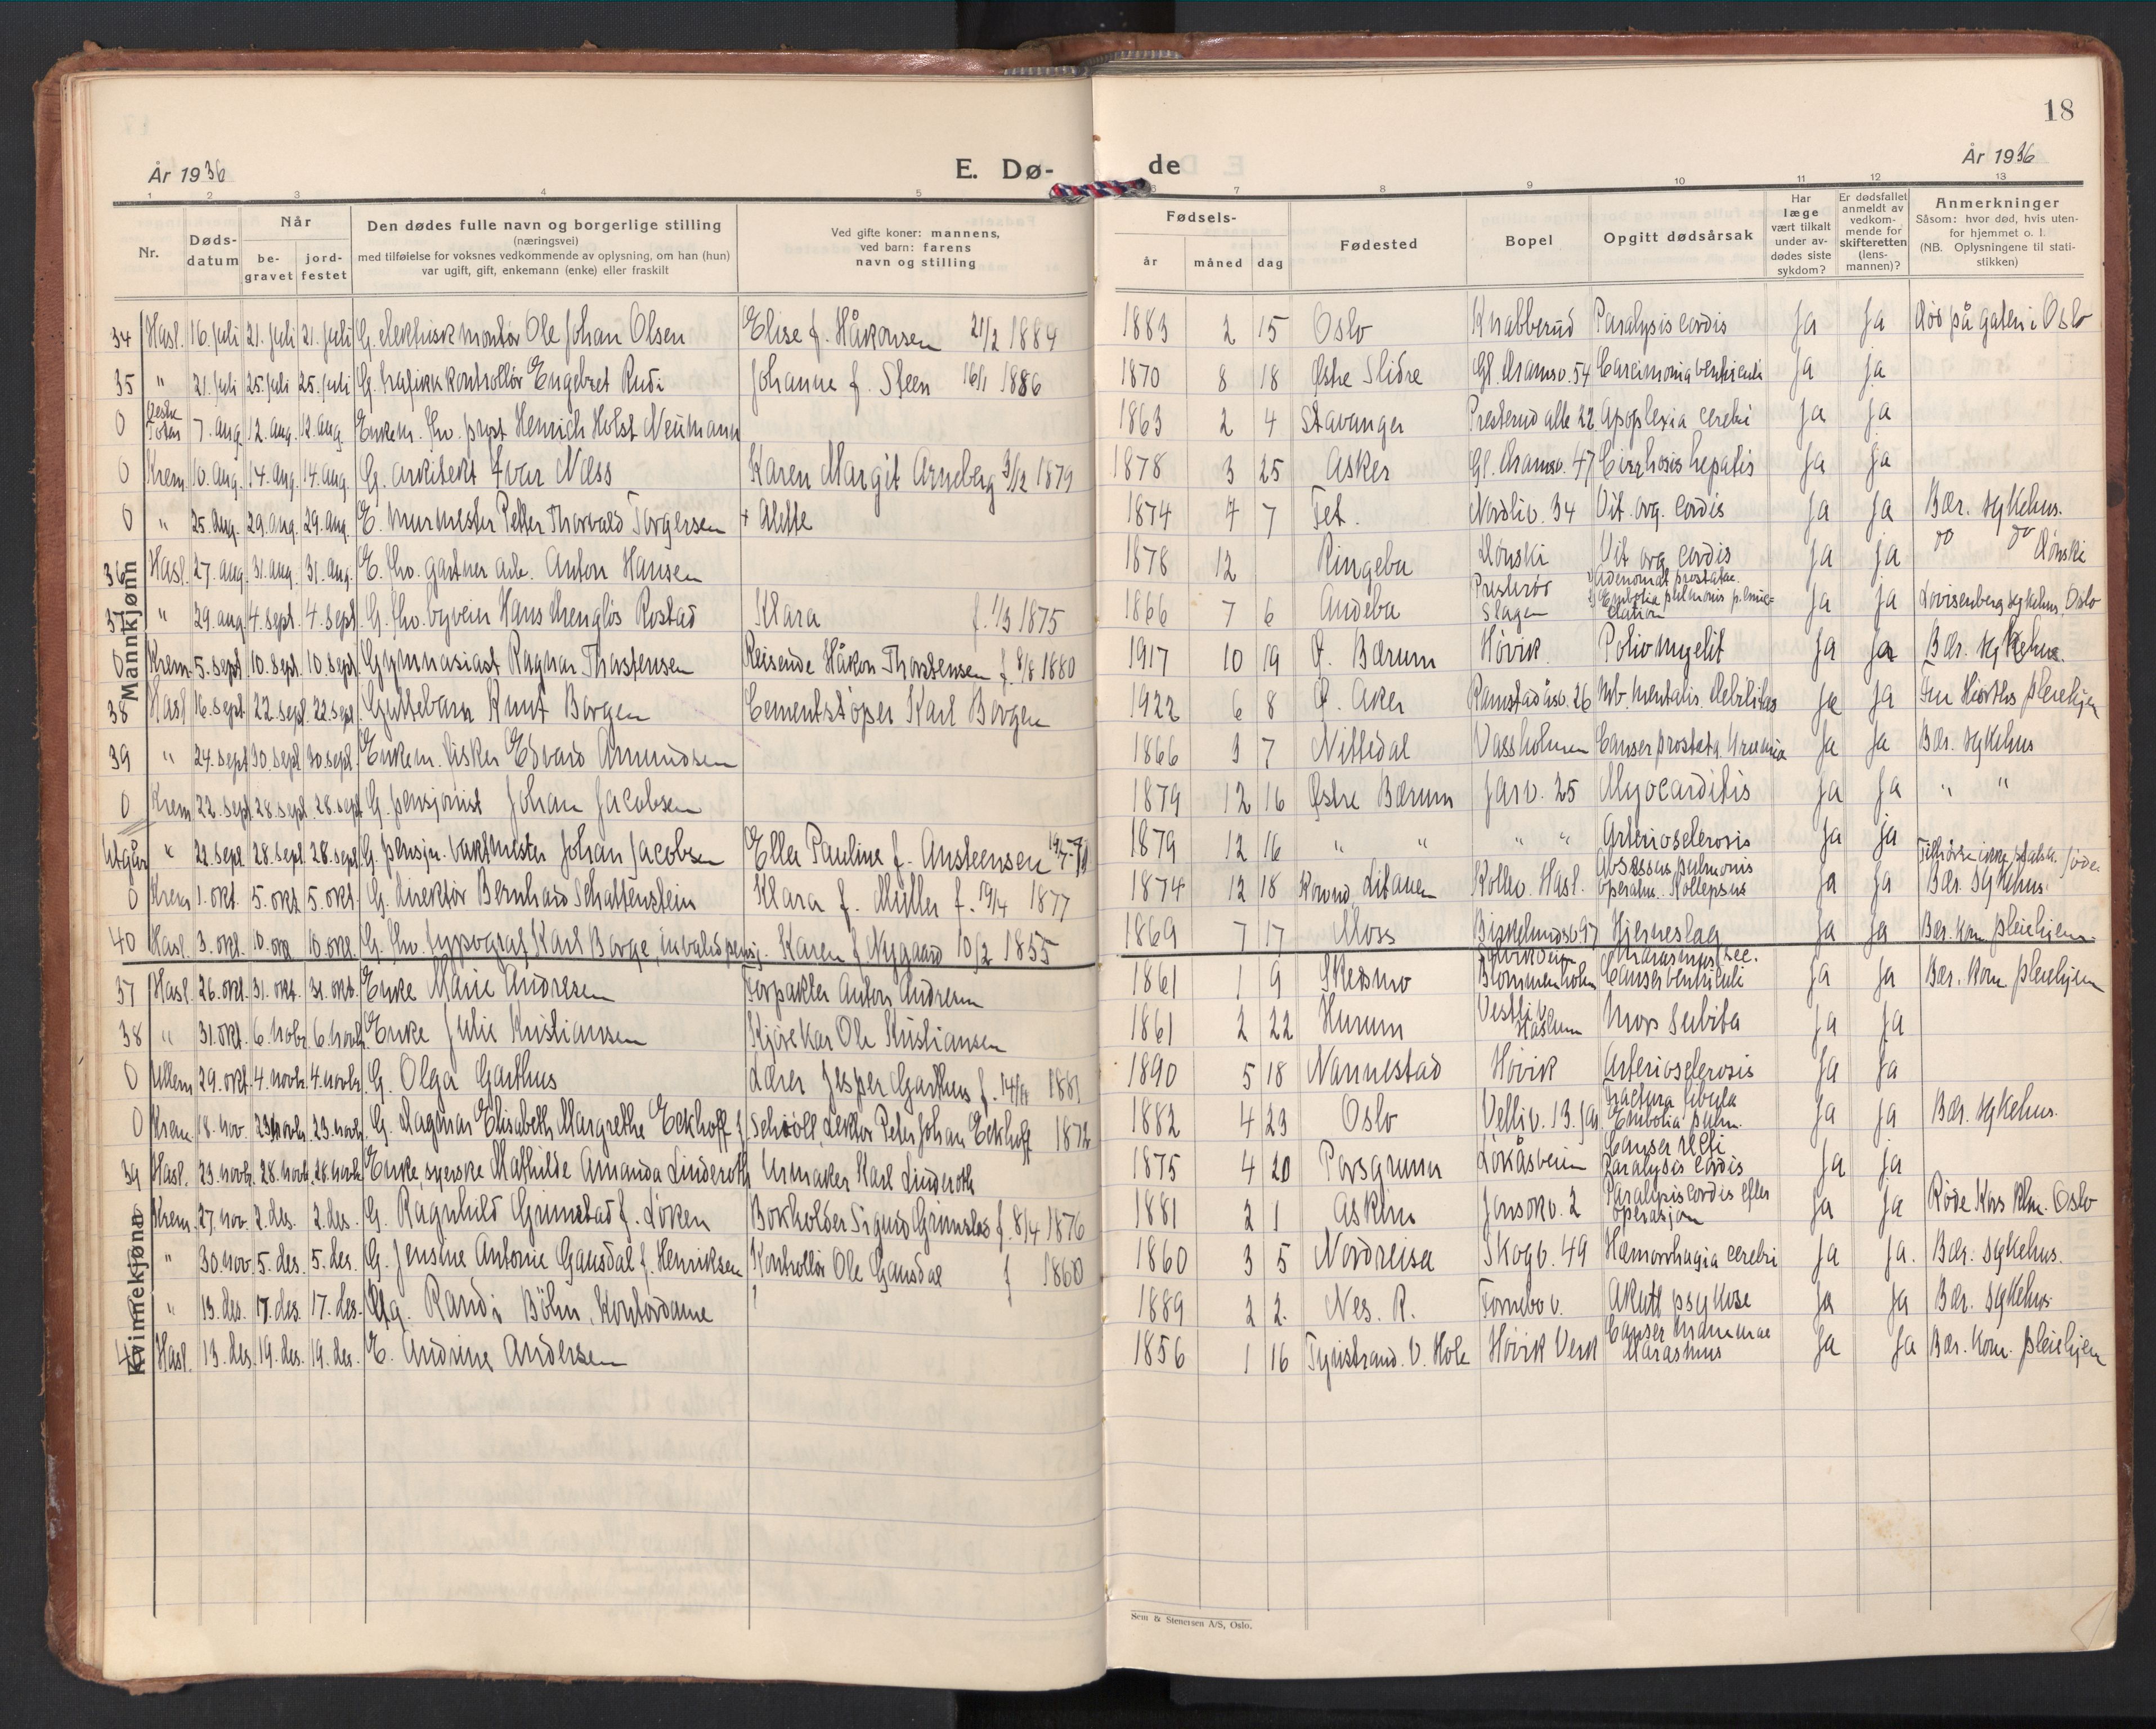 18
År 1936
E. Dø-
de
År 1936
1 2 3 4 5
6 7 8 9 10 11 12 13
Nr.
Døds-
datum
Når
be-
gravet
jord-
festet
Den dødes fulle navn og borgerlige stilling
(næringsvei)
med tilføielse for voksnes vedkommende av oplysning, om han (hun)
var ugift, gift, enkemann (enke) eller fraskilt
Ved gifte koner: mannens,
ved barn: farens
navn og stilling
Fødsels-
år måned dag
Fødested
Bopel
Opgitt dødsårsak
Har
læge
vært tilkalt
under av-
dødes siste
sykdom?
Er dødsfallet
anmeldt av
vedkom-
mende for
skifteretten
(lens-
mannen)?
Anmerkninger
Såsom: hvor død, hvis uten-
for hjemmet o. l.
(NB. Oplysningene til stati-
stikken)
Mannkjønn
34 Hasl. 16. juli 21. juli 21. juli G. elektrisk montør Ole Johan Olsen Elise f. Håkonsen 21/2 1884 1883 2 15 Oslo Knabberud Paralysis cordis Ja Ja Død på gaten i Oslo
35 " 21. juli 25. juli 25. juli G. trafikk kontrollør Engebret Rudi Johanne f. Steen 16/1 1886 1870 8 18 Østre Slidre Gl. Dramsv. 54 Carcinoma ventriculi Ja Ja
0 Vestre Toten 7. aug. 12. aug. 12. aug. Enkem. fhv. prost Henrich Holst Neumann 1863 2 4 Stavanger Presterud alle 22 Apoplexia cerebri Ja Ja
0 Krem. 10. aug. 14. aug. 14. aug. G. arkitekt Ivar Næss Karen Margit Arneberg 3/12 1879 1878 3 25 Asker Gl. Dramsv. 47 Cirrhosis hepatis Ja Ja
0 " 25. aug. 29. aug. 29. aug. E. murmester Petter Thorvald Torgersen + Alette 1874 7 7 Fet. Nordliv. 34 Vit. org. cordis Ja Ja Bær. sykehus.
36 Hasl. 27. aug. 31. aug. 31. aug. E. fhv. gartner arb. Anton Hansen 1878 12 Ringebu Dønski Vit. org. cordis Ja Ja do do Dønski
37 " 29. aug. 4. sept. 4. sept. G. fhv. byveier Hans Rostad Klara f. 1/3 1875 1866 7 6 Andebu Presterød Slagen Adenomat. prostatae. Embolia pulmonis Ja Ja Lovisenberg sykehus, Oslo
0 Krem. 5. sept. 10. sept. 10. sept. Gymnasiast Ragnar Thorstensen Reisende Håkon Thorstensen f. 8/8 1880 1917 10 19 Ø. Bærum Høvik Poliomyelit Ja Ja Bær. sykehus.
38 Hasl. 16. sept. 22. sept. 22. sept. Guttebarn Knut Borgen Cementstøper Karl Borgen 1922 6 8 Ø. Aker Ramstadåsv. 26 mentalis. Debilitas Ja Ja Fru Hiorths pleiehjem
39 " 24. sept. 30. sept. 30. sept. Enkem. fisker Edvard Amundsen 1866 3 7 Nittedal Vassholmen Canser prostata Uræmia Ja Ja Bær. sykehus
0 Krem. 22. sept. 28. sept. 28. sept. G. pensjonist Johan Jacobsen 1879 12 16 Østre Bærum Jarv. 25 Myocarditis Ja Ja " "
Utgår " 22. sept. 28. sept. 28. sept. G. pensjn. vaktmester Johan Jacobsen Ella Pauline f. Ansteensen 1879 12 16 " " " " Arteriosclerosis Ja Ja Tilhørte ikke statsk. Jøde
0 Krem 1. okt. 5. okt. 5. okt. G. direktør Bernhard Schattenstein Klara f. Müller f. 19/4 1877 1874 12 18 Kowno, Litauen Kollv. Hasl. Abscessus pulmonis operatn. Kollapsus Ja Ja Bær. sykehus.
40 Hasl. 3. okt. 10. okt. 10. okt. G. fhv. typograf Karl Borge, invalidpensj. Karen f. Nygaard 10/2 1855 1869 7 17 Moss Birkelundsv. 17 Hjerneslag Ja Ja Bær. kom. pleiehjem.
Kvinnekjønn
37 Hasl. 26. okt. 31. okt. 31. okt. Enke Marie Andresen Forpakter Anton Andresen 1861 1 9 Skedsmo Blommenholm Marasmus Canser ventriculi Ja Ja Bær. kom. pleiehjem
38 " 31. okt. 6. novbr. 6. novb. Enke Julie Kristiansen Kjørekar Ole Kristiansen 1861 2 22 Hurum Vestliv Haslum Mors subita Ja Ja
0 Ullern 29. okt. 4. novbr. 4. novbr. G. Olga Garthus Lærer Jesper Garthus f. 14/11 1881 1890 5 18 Nannestad Høvik Arteriosclerosis Ja Ja
0 Krem. 18. nov. 23. novbr. 23. novb. G. Dagmar Elisabeth Margrethe Eckhoff f. Schiøll, Lektor Peter Johan Eckhoff 1872 1882 4 23 Oslo Velliv. 13. Jar Fractura fibula Embolia pulm. Ja Ja Bær. sykehus.
39 Hasl. 23. novb. 28. novb. 28. novb. Enke syerske Mathilde Amanda Linderoth Urmaker Karl Linderoth 1875 4 20 Porsgrunn Løkåsveien Canser recti Paralysis cordis Ja Ja
Krem. 27. nov. 2. des. 2. des. G. Ragnhild Grimstad f. Løken Bokholder Sigurd Grimstad f. 8/4 1876 1881 2 1 Askim Jansokv. 2 Paralysis cordis efter operasjon Ja Ja Røde Kors Klin. Oslo
" 30. nov. 5. des. 5. des. G. Jensine Antonie Gausdal f. Henriksen Kontrollør Ole Gausdal f 1860 1860 3 5 Nordreisa Skogv. 49 Hæmorrhagia cerebri Ja Ja. Bær. sykehus.
" 13. des. 17. des. 17. des. Ug. Randi Bøhn, Kontordame ? 1889 2 2. Nes. R. Fornebov. Akutt psykose Ja Ja Bær. sykehus.
Hasl. 13. des. 19. des. 19. des. E. Andrine Andersen 1856 1 16 Tyristrand. V. Hole Høvik Verk Canser mammae Marasmus Ja Ja Bær. kom. pleiehjem
Sem & Stenersen A/S, Oslo.